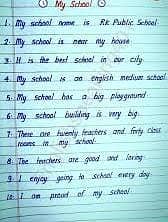 My School
1. My school name is Rk Public School
2. My school is near my house
3. It is the best school in our city
4. My school is an english medium school
5. My school has a big playground
6. My school building is very big
7. There are twenty teachers and forty class
rooms in my school.
8. The teachers are good and loving
9. I enjoy going to school every day
10. I am proud of my school.